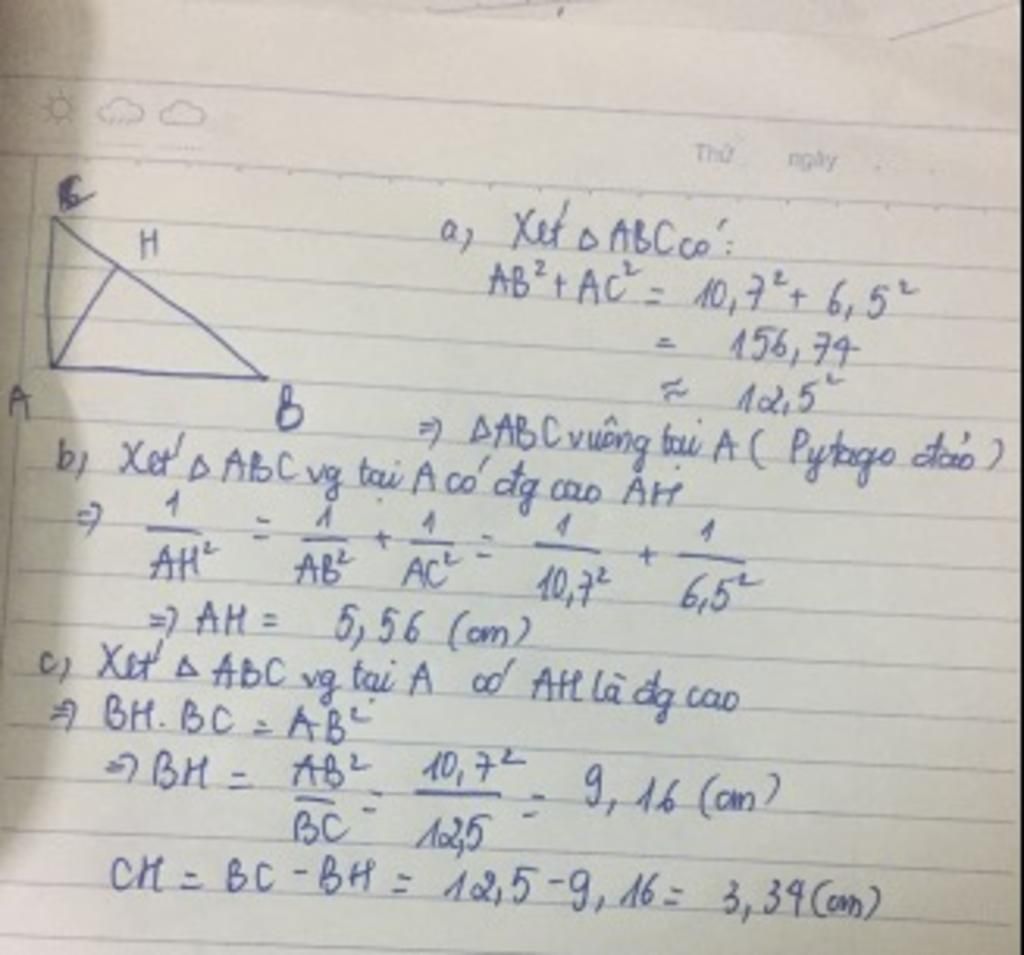 Thứ ngày
C
H
A
B
a, Xét △ABC có:
AB² + AC² = 10,7² + 6,5²
= 156,74
≈ 12,5²
⇒ △ABC vuông tại A ( Pytago đảo )
b, Xét △ ABC vg tại A có đg cao AH
⇒ 1/AH² = 1/AB² + 1/AC² = 1/10,7² + 1/6,5²
⇒ AH = 5,56 (cm)
c, Xét △ ABC vg tại A có AH là đg cao
⇒ BH.BC = AB²
⇒ BH = AB²/BC = 10,7²/12,5 = 9,16 (cm)
CH = BC - BH = 12,5 - 9,16 = 3,34 (cm)